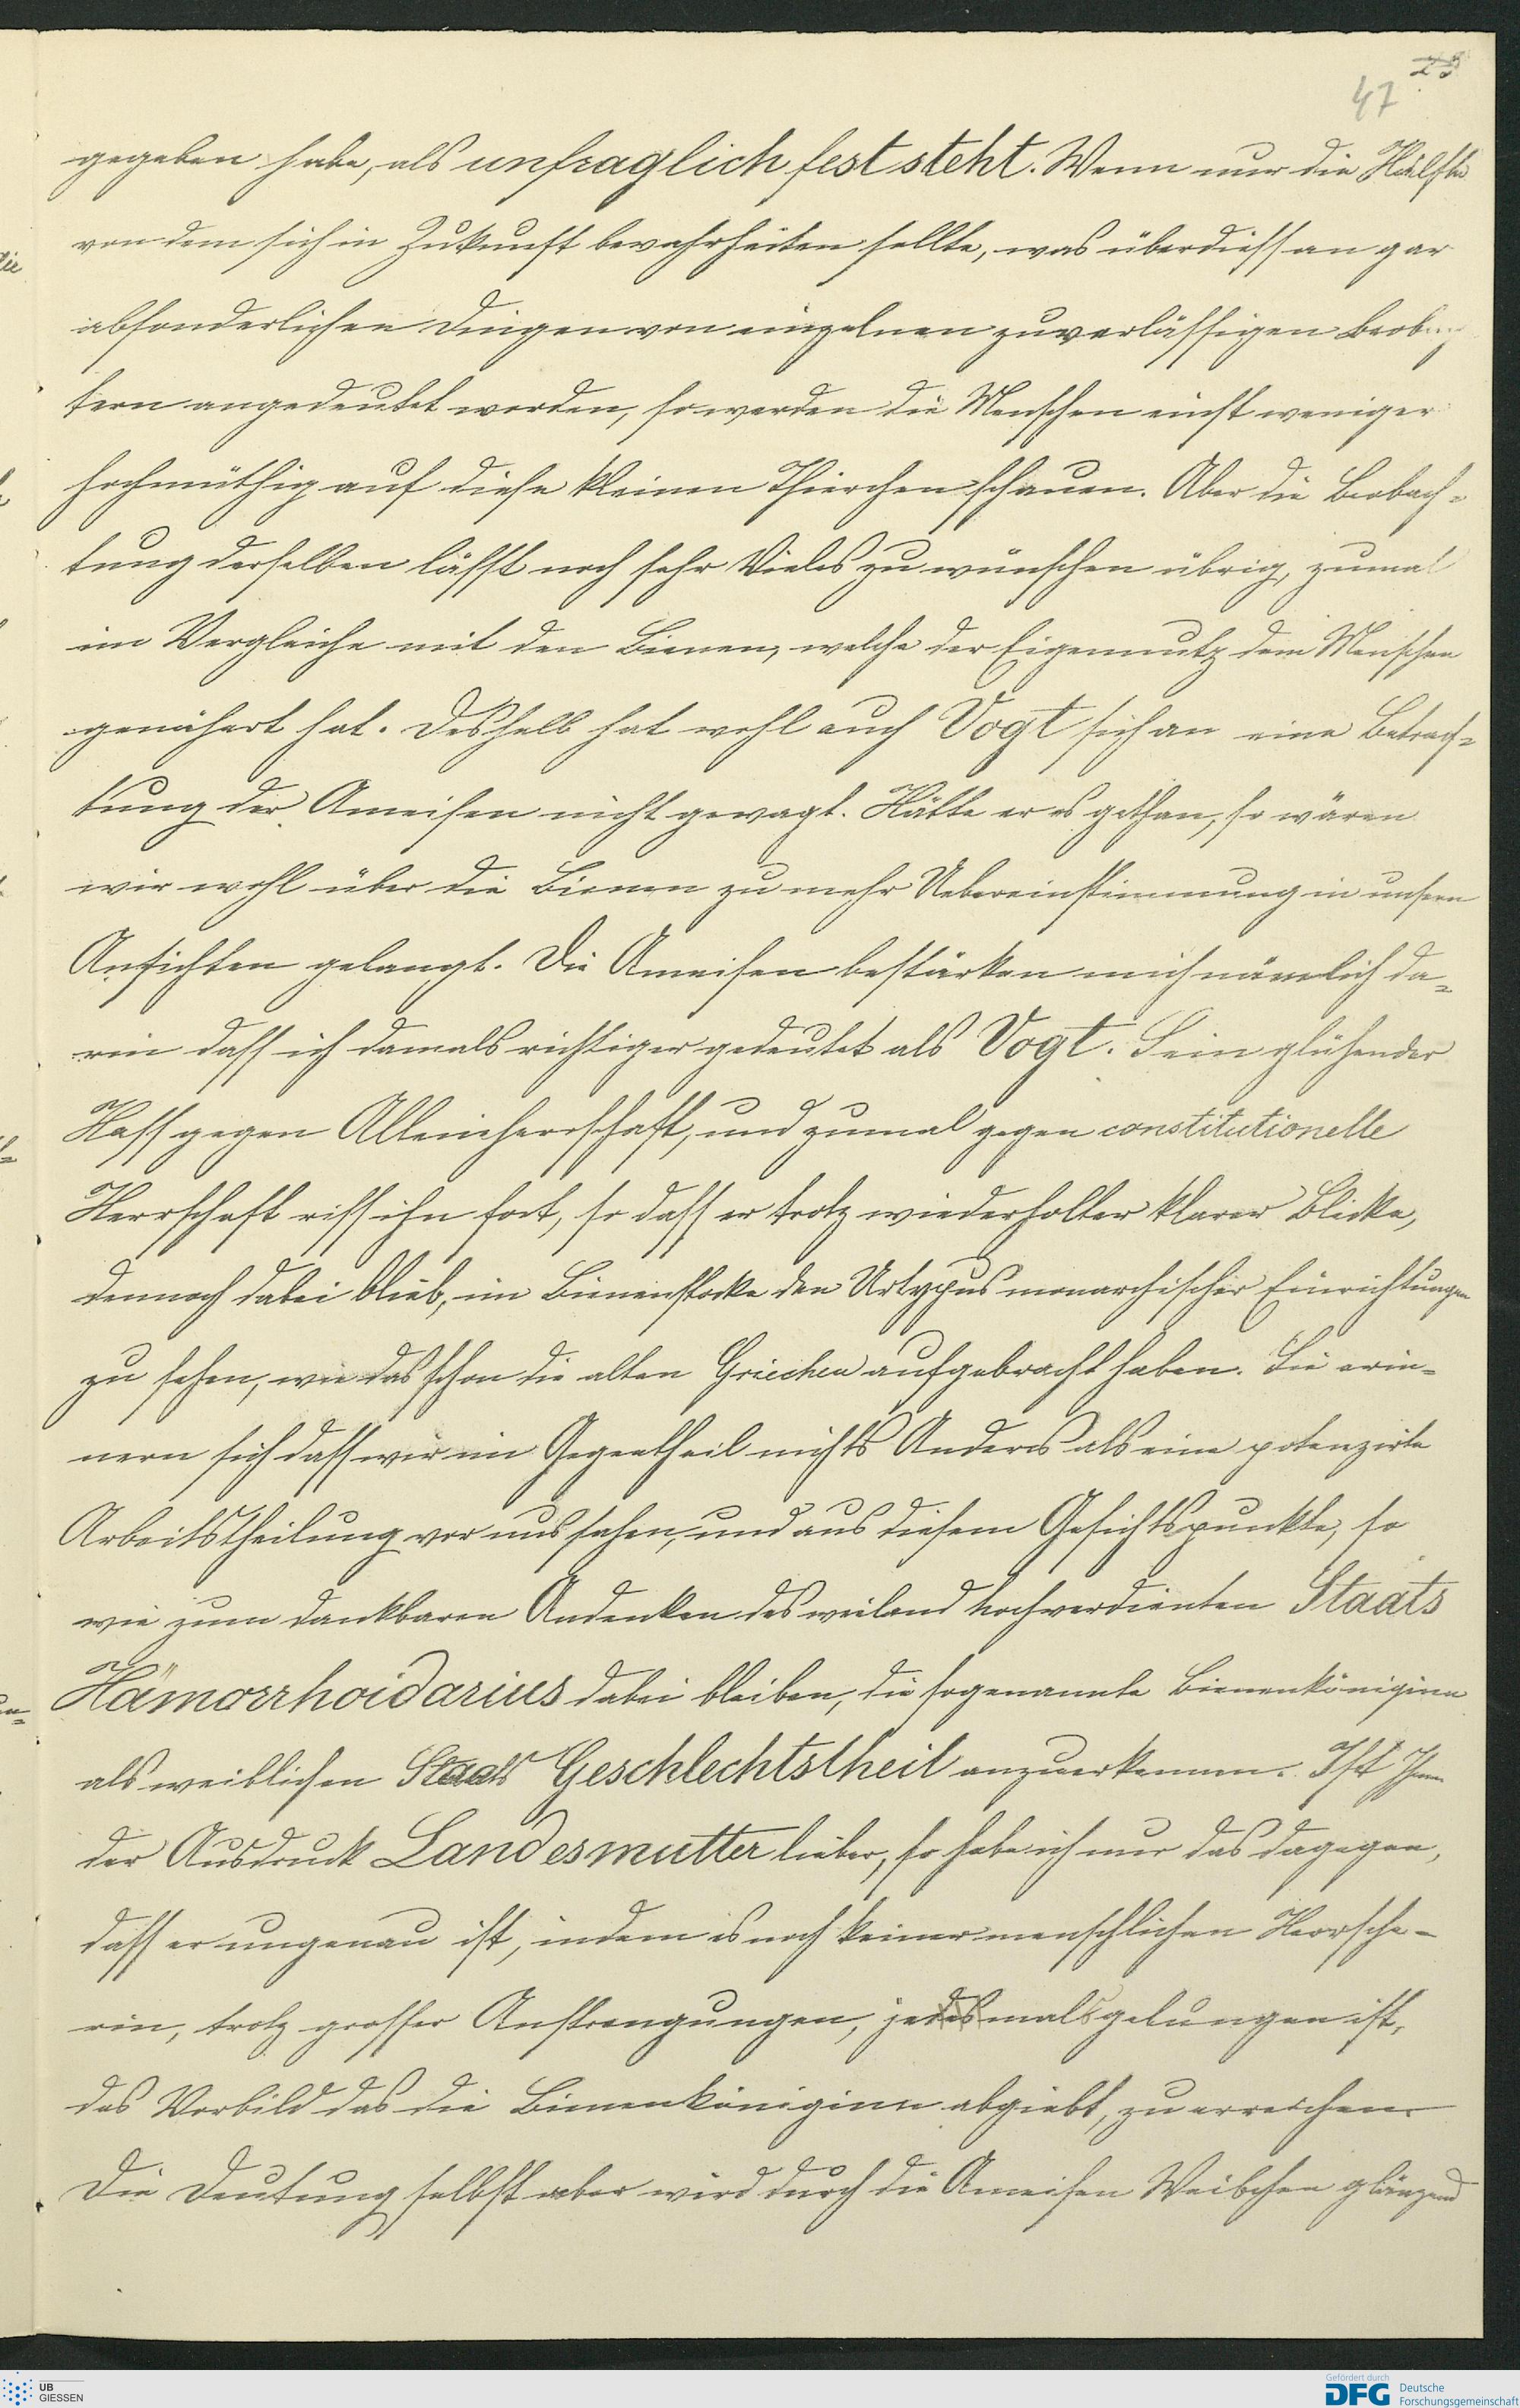 25
47
gegeben habe, als unfraglich fest steht. Wenn nur die Hälfte
von dem sich in Zukunft bewahrheiten sollte, was überdiess an gar
absonderlichen Dingen von einzelnen zuverlässigen Beobach
tern angedeutet worden, so werden die Menschen einst weniger
hochmüthig auf diese kleinen Thierchen schauen. Aber die Beobach-
tung derselben lässt noch sehr Vieles zu wünschen übrig, zumal
im Vergleiche mit den Bienen, welche der Eigennutz dem Menschen
genähert hat. Desshalb hat wohl auch Vogt sich an eine Betrach-
tung der Ameisen nicht gewagt. Hätte er es gethan, so wären
wir wohl über die Bienen zu mehr Uebereinstimmung in unsern
Ansichten gelangt. Die Ameisen bestärken mich nämlich da-
rin dass ich damals richtiger gedeutet als Vogt. Sein glühender
Hass gegen Alleinherrschaft, und zumal gegen constitutionelle
Herrschaft riss ihn fort, so dass er trotz wiederholter klarer Blicke,
dennoch dabei blieb, im Bienenstocke den Urtypus monarchischer Einrichtungen
zu sehen, wie das schon die alten Griechen aufgebracht haben. Sie erin-
nern sich dass wir im Gegentheil nichts Anderes als eine potenzirte
Arbeitstheilung vor uns sahen, und aus diesem Gesichtspunkte, so
wie zum dankbaren Andenken des weiland hochverdienten Staats
Hämorrhoidarius dabei bleiben, die sogenannte Bienenköniginn
als weiblichen Staats Geschlechtstheil anzuerkennen. Ist Ihnen
der Ausdruck Landesmutter lieber, so habe ich nur das dagegen,
dass er ungenau ist, indem es noch keiner menschlichen Herrsche-
rin, trotz grosser Anstrengungen, jemals gelungen ist,
das Vorbild das die Bienenköniginn abgiebt, zu erreichen.
Die Deutung selbst aber wird durch die Ameisen Weibchen glänzend
UB
GIESSEN
Gefördert durch
DFG Deutsche
Forschungsgemeinschaft